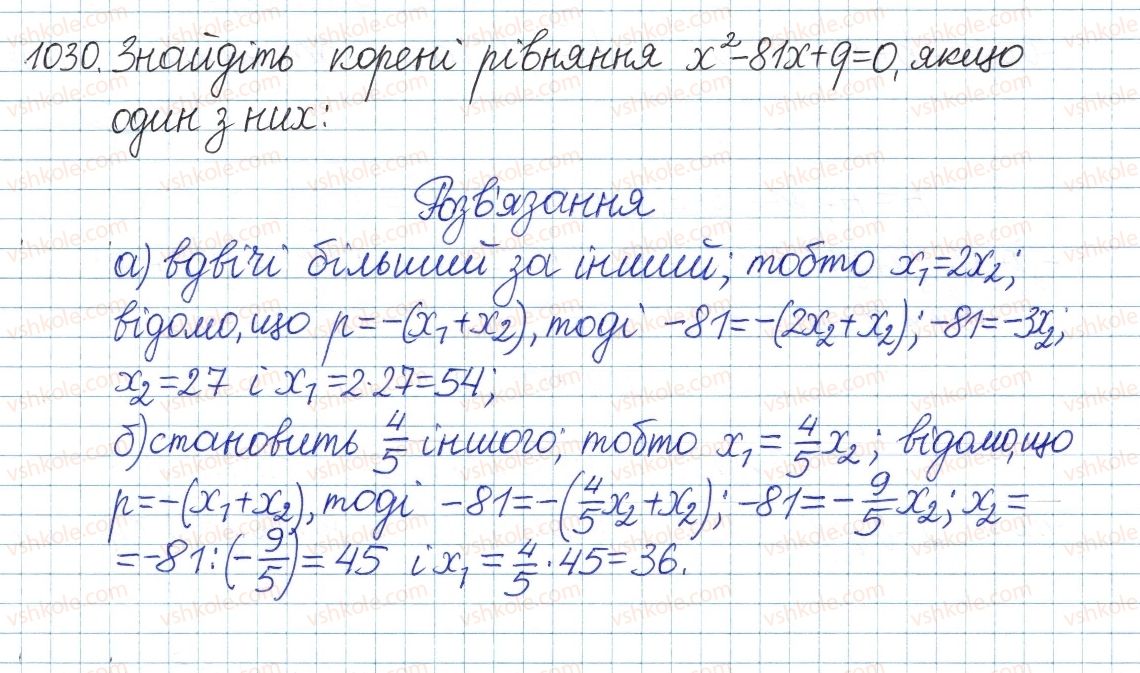 1030. Знайдіть корені рівняння x²-81x+9=0, якщо
один з них:
Розв'язання
а) вдвічі більший за інший; тобто x₁=2x₂;
відомо, що p=-(x₁+x₂), тоді -81=-(2x₂+x₂); -81=-3x₂;
x₂=27 і x₁=2·27=54;
б) становить 4/5 іншого; тобто x₁=4/5x₂; відомо, що
p=-(x₁+x₂), тоді -81=-(4/5x₂+x₂); -81=-9/5x₂; x₂=
=-81:(-9/5)=45 і x₁=4/5·45=36.